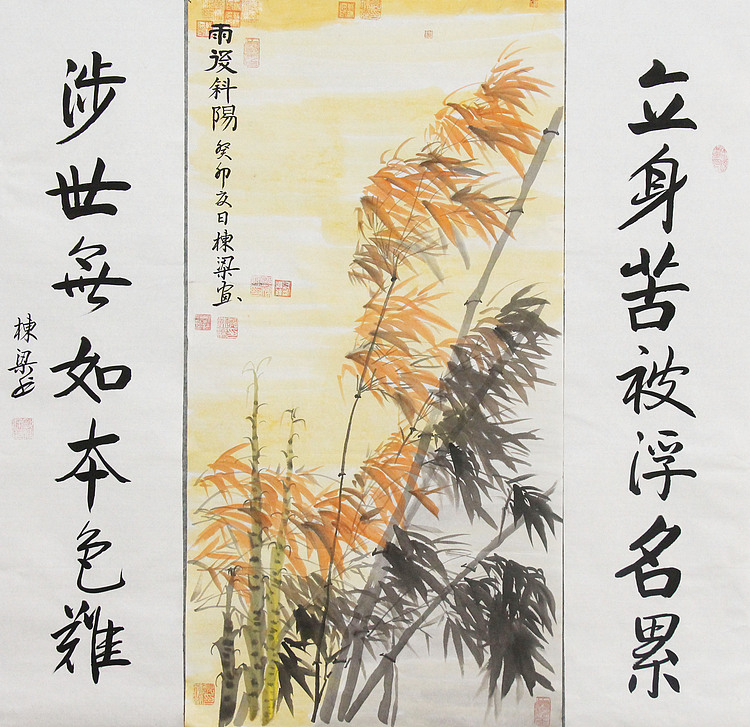 立身苦被浮名累
雨後斜陽
癸卯夏日棟梁畫
涉世無如本色難
棟梁书